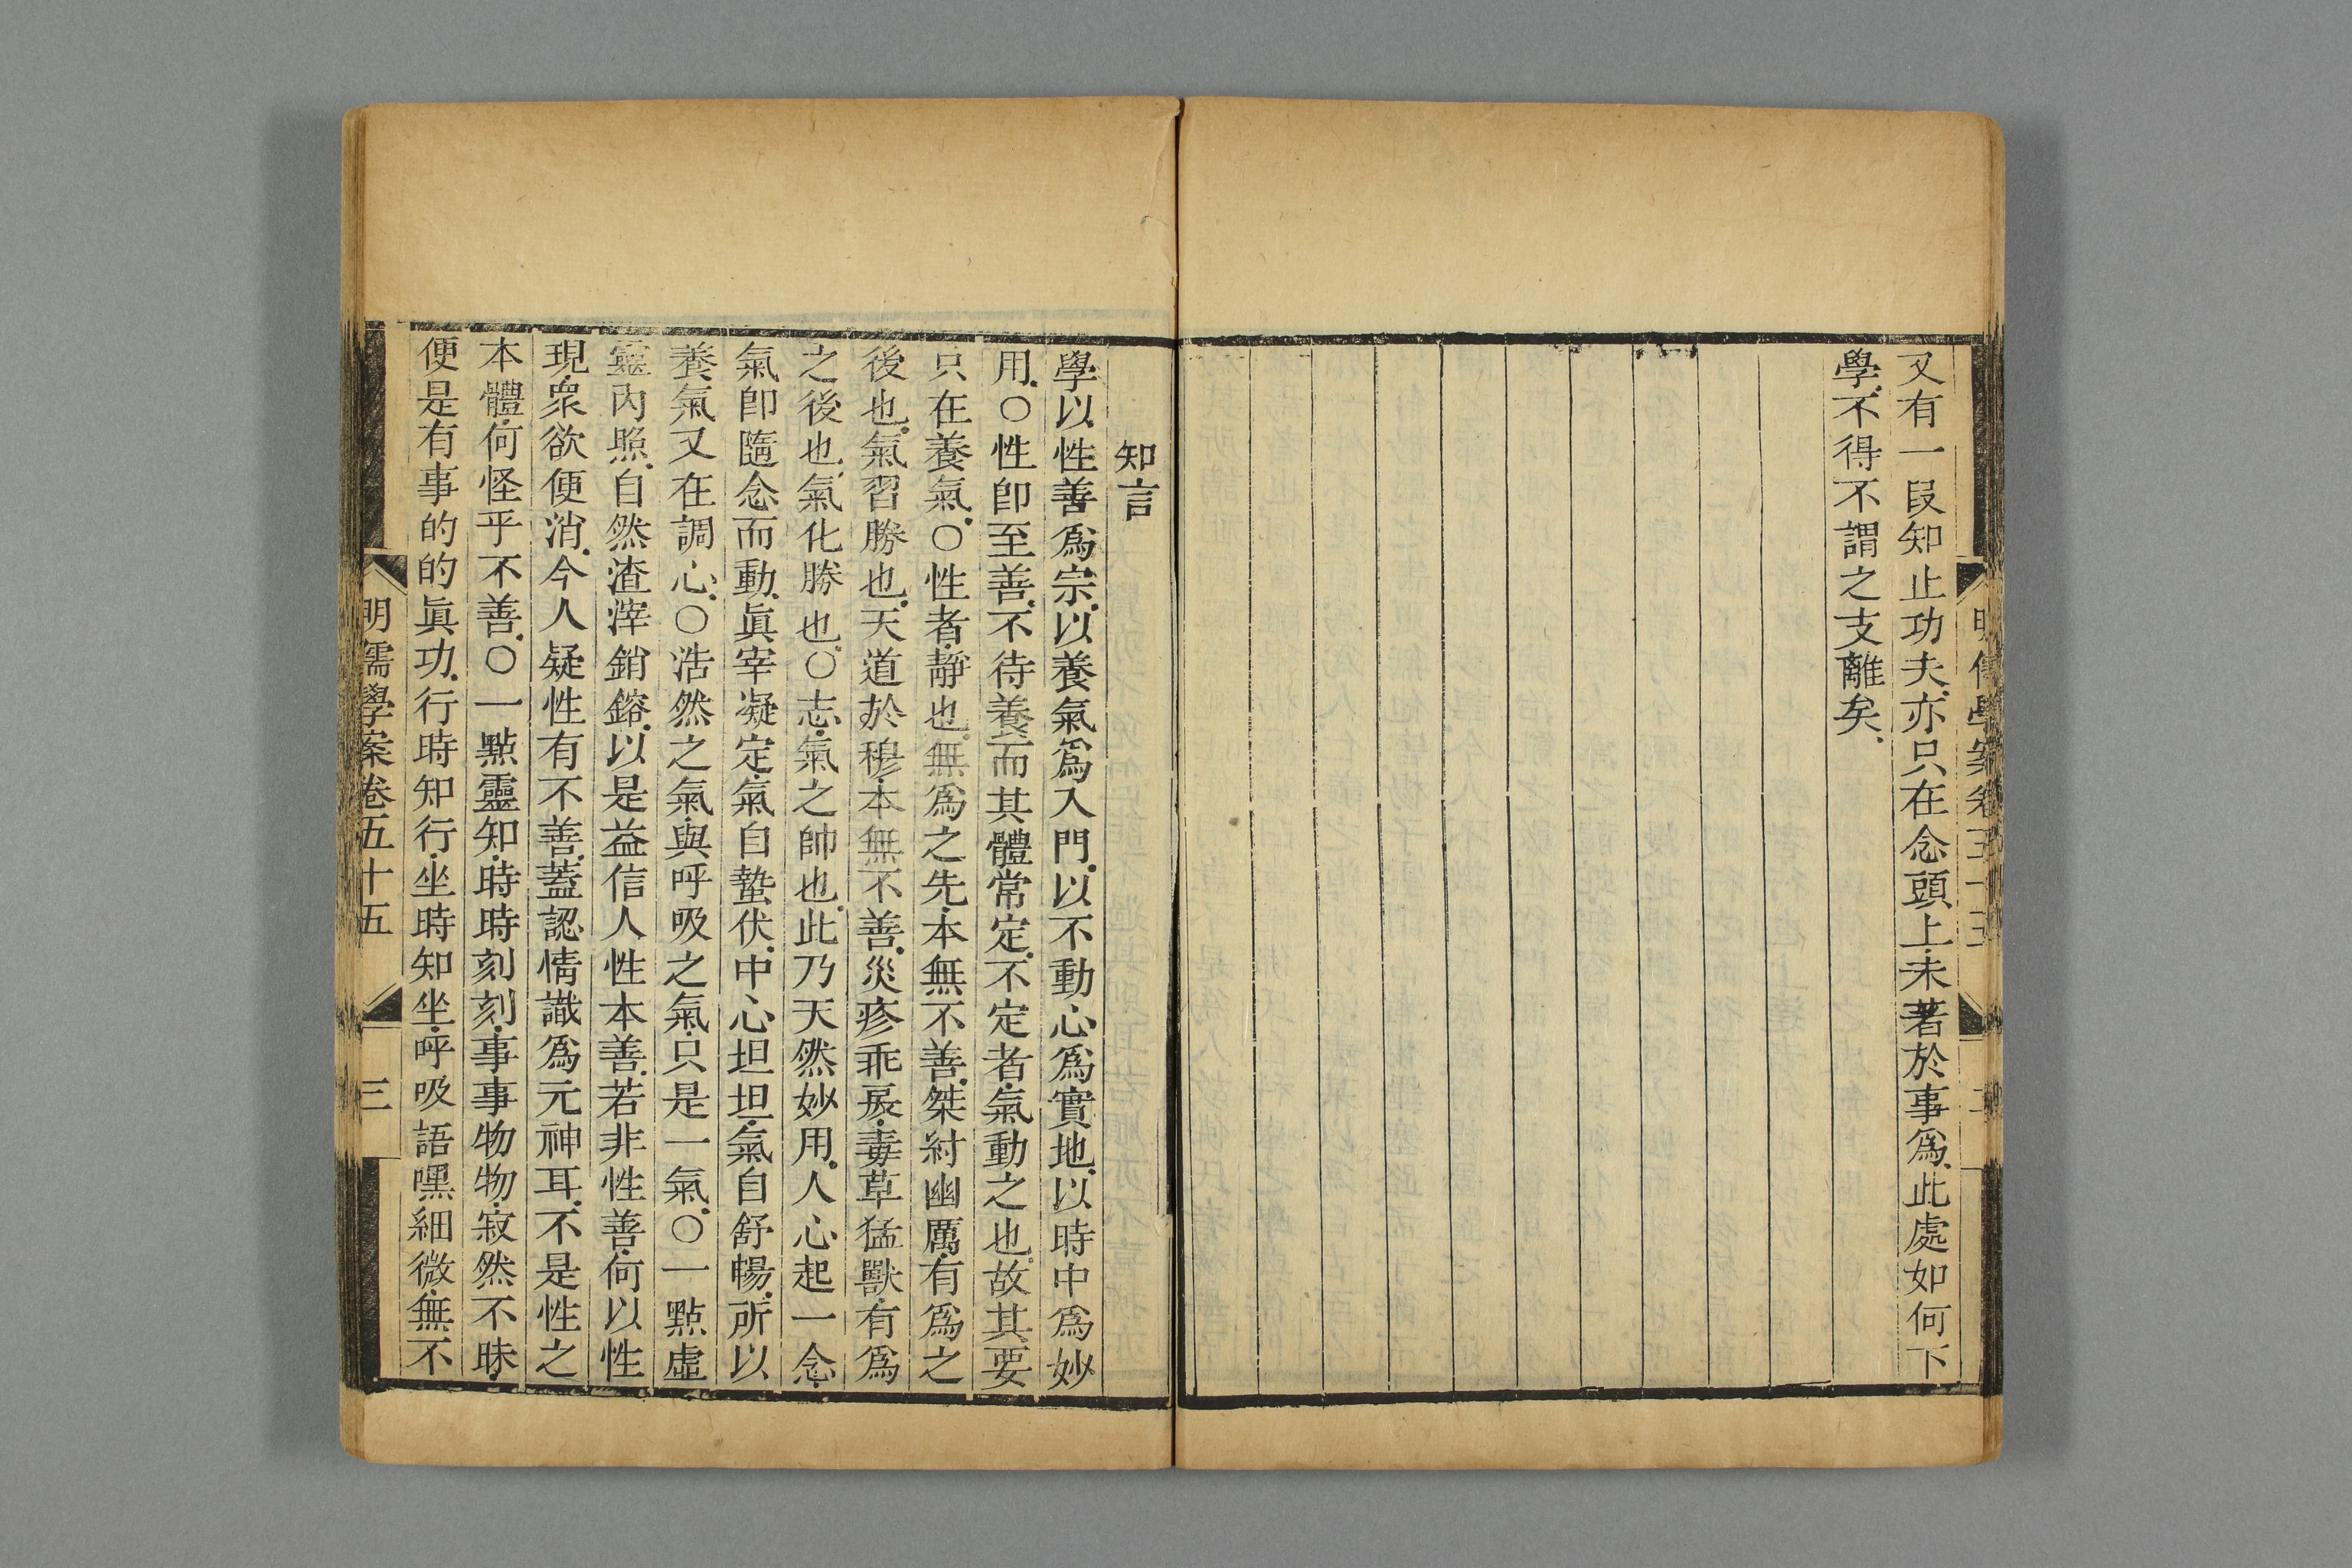 又有一段知止功夫亦只在念頭上未著於事爲此處如何下
學不得不謂之支離矣
知言
學以性善爲宗以養氣爲入門以不動心爲實地以時中爲妙
用○性卽至善不待養而其體常定不定者氣動之也故其要
只在養氣○性者靜也無爲之先本無不善桀紂幽厲有爲之
後也氣習勝也天道於穆本無不善災疹乖戾毒草猛獸有爲
之後也氣化勝也○志氣之帥也此乃天然妙用人心起一念
氣卽隨念而動眞宰凝定氣自蟄伏中心坦坦氣自舒暢所以
養氣又在調心○浩然之氣與呼吸之氣只是一氣○一點虛
靈內照自然渣滓銷鎔以是益信人性本善若非性善何以性
現衆欲便消今人疑性有不善蓋認情識爲元神耳不是性之
本體何怪乎不善○一點靈知時時刻刻事事物物寂然不昧
便是有事的的眞功行時知行坐時知坐呼吸語嘿細微無不
明儒學案卷五十五 三